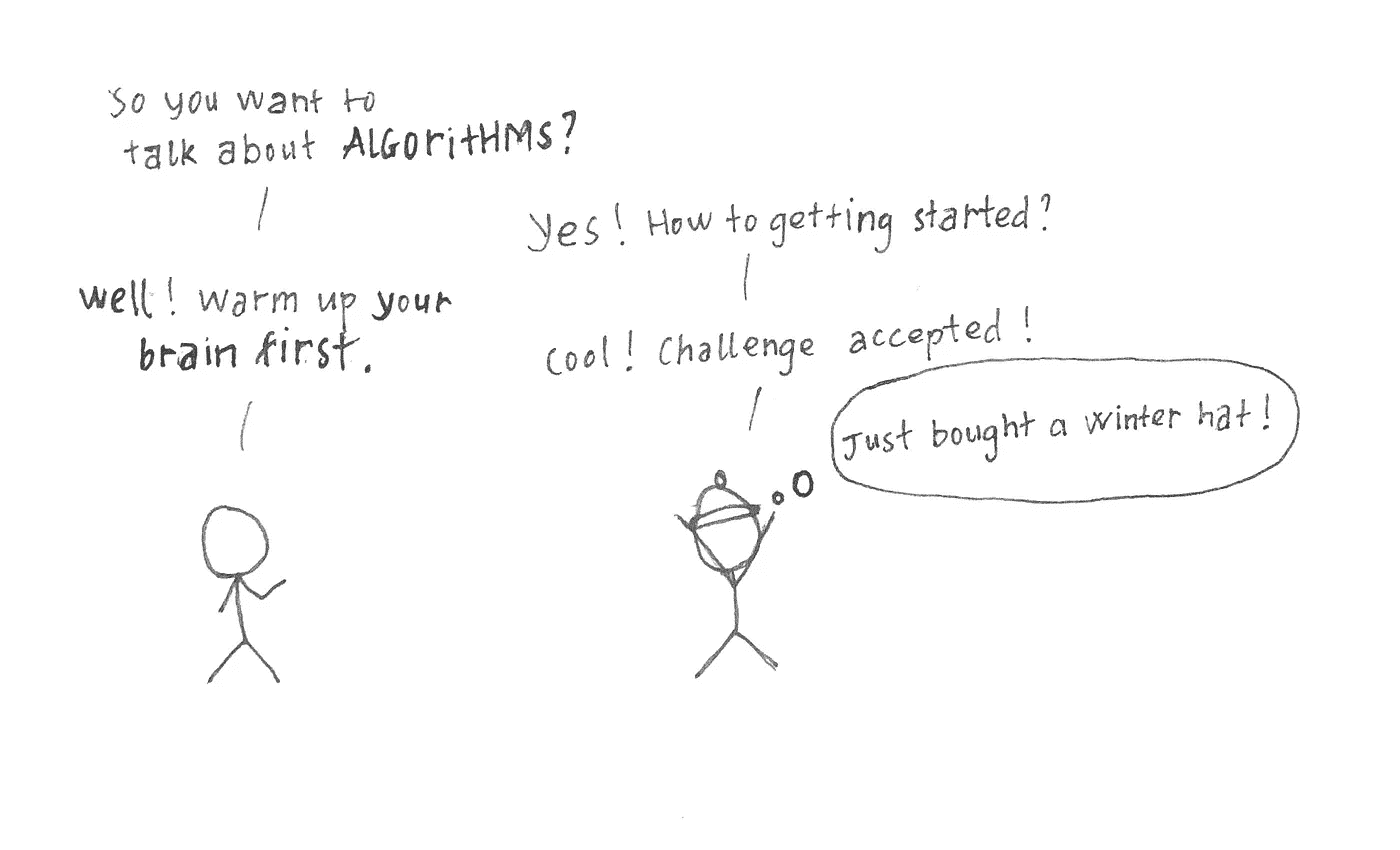 So you want to
talk about ALGoritHMS?
Yes! How to getting started?
well! warm up your
brain first.
Cool! Challenge accepted!
Just bought a winter hat!